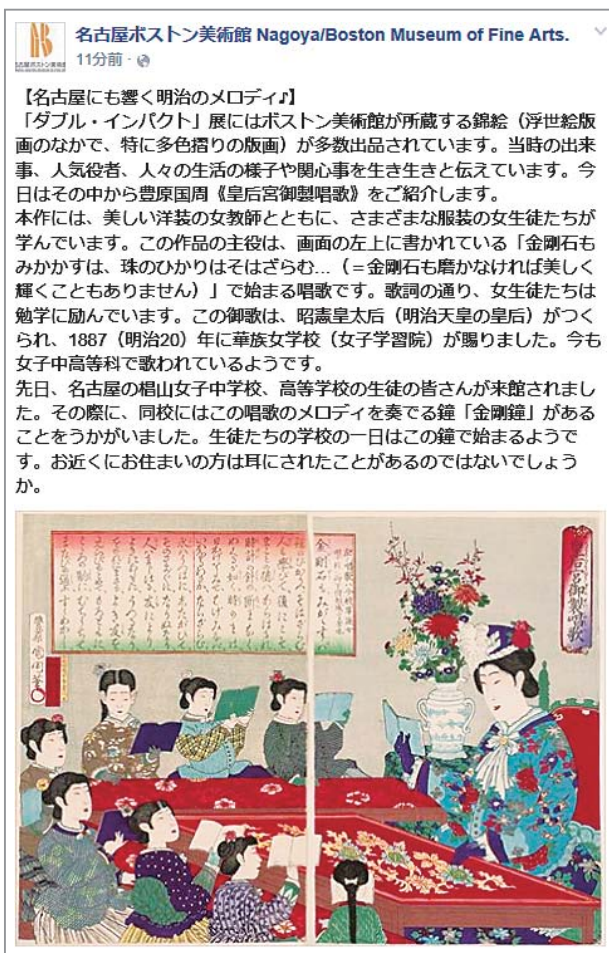 名古屋ボストン美術館 Nagoya/Boston Museum of Fine Arts.
11分前 ·
【名古屋にも響く明治のメロディ♪】
「ダブル・インパクト」展にはボストン美術館が所蔵する錦絵（浮世絵版
画のなかで、特に多色摺りの版画）が多数出品されています。当時の出来
事、人気役者、人々の生活の様子や関心事を生き生きと伝えています。今
日はその中から豊原国周《皇后宮御製唱歌》をご紹介します。
本作には、美しい洋装の女教師とともに、さまざまな服装の女生徒たちが
学んでいます。この作品の主役は、画面の左上に書かれている「金剛石も
みかかすは、珠のひかりはそはざらむ...（＝金剛石も磨かなければ美しく
輝くこともありません）」で始まる唱歌です。歌詞の通り、女生徒たちは
勉学に励んでいます。この御歌は、昭憲皇太后（明治天皇の皇后）がつく
られ、1887（明治20）年に華族女学校（女子学習院）が賜りました。今も
女子中高等科で歌われているようです。
先日、名古屋の椙山女子中学校、高等学校の生徒の皆さんが来館されまし
た。その際に、同校にはこの唱歌のメロディを奏でる鐘「金剛鐘」がある
ことをうかがいました。生徒たちの学校の一日はこの鐘で始まるようで
す。お近くにお住まいの方は耳にされたことがあるのではないでしょう
か。
皇后宮御製唱歌